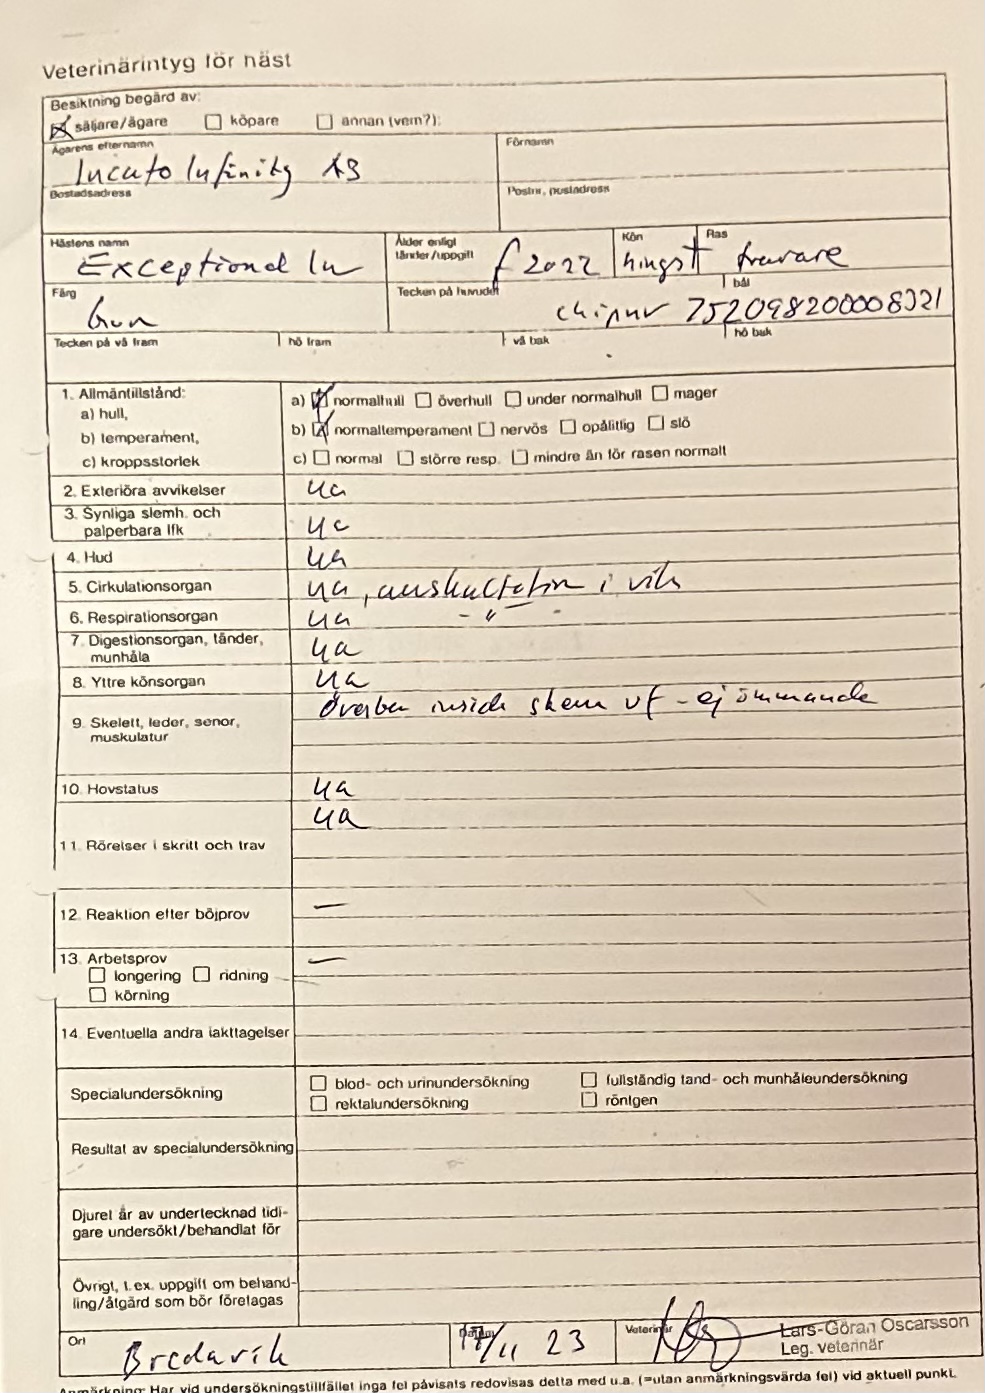 Veterinärintyg för häst
Besiktning begärd av:
säljare/ägare köpare annan (vem?):
Ägarens efternamn Förnamn
Incuto Infinity AB
Bostadsadress Postnr, postadress
Hästens namn Ålder enligt tänder/uppgift Kön Ras
Exceptional In f 2022 hingst travare
Färg Tecken på huvudet bål
brun chipnr 752098200008321
Tecken på vä fram hö fram vä bak hö buk
1. Allmäntillstånd:
a) hull, a) normalhull överhull under normalhull mager
b) temperament, b) normaltemperament nervös opålitlig slö
c) kroppsstorlek c) normal större resp. mindre än för rasen normalt
2. Exteriöra avvikelser ua
3. Synliga slemh. och palperbara lfk ua
4. Hud ua
5. Cirkulationsorgan ua, auskultation i vila
6. Respirationsorgan ua - " -
7. Digestionsorgan, tänder, munhåla ua
8. Yttre könsorgan ua
9. Skelett, leder, senor, muskulatur Överben insida sken vf - ej ömmande
10. Hovstatus ua
11. Rörelser i skritt och trav ua
12. Reaktion efter böjprov —
13. Arbetsprov —
longering ridning
körning
14. Eventuella andra iakttagelser
Specialundersökning blod- och urinundersökning fullständig tand- och munhåleundersökning
rektalundersökning röntgen
Resultat av specialundersökning
Djuret är av undertecknad tidi-
gare undersökt/behandlat för
Övrigt, t.ex. uppgift om behand-
ling/åtgärd som bör företagas
Ort Datum Veterinär Lars-Göran Oscarsson
Bredavik 17/11 23 Leg. veterinär
Anmärkning: Har vid undersökningstillfället inga fel påvisats redovisas detta med u.a. (=utan anmärkningsvärda fel) vid aktuell punkt.